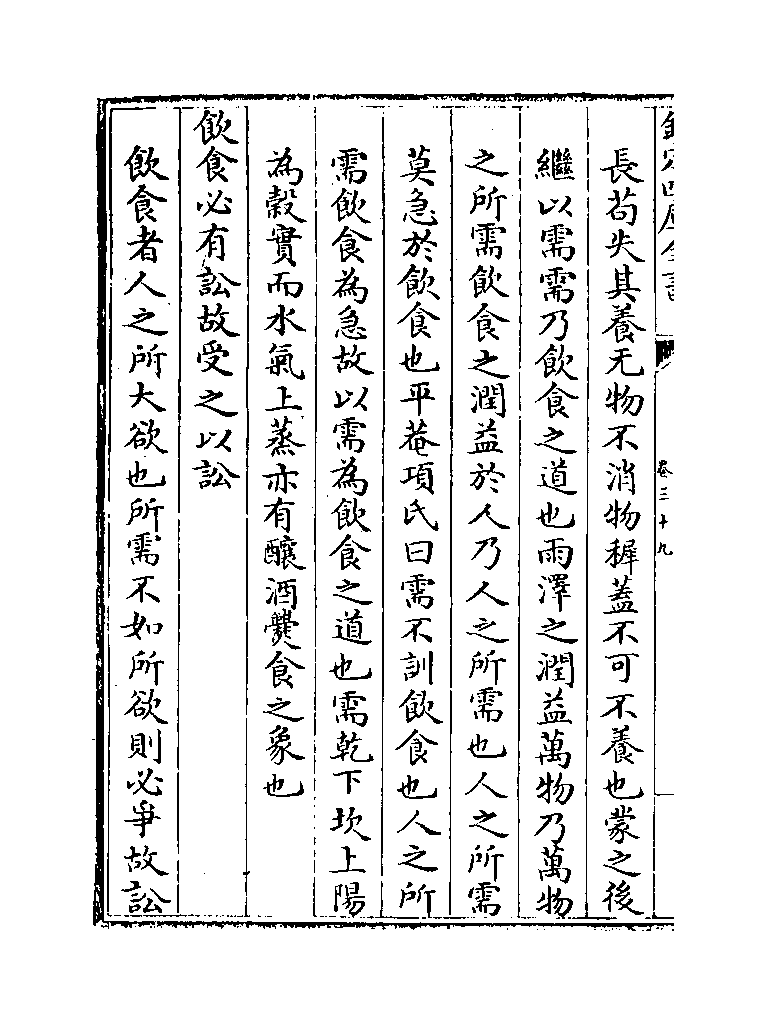 欽定四庫全書
卷三十九
長苟失其養无物不消物穉蓋不可不養也蒙之後
繼以需需乃飲食之道也雨澤之潤益萬物乃萬物
之所需飲食之潤益於人乃人之所需也人之所需
莫急於飲食也平菴項氏曰需不訓飲食也人之所
需飲食為急故以需為飲食之道也需乾下坎上陽
為穀實而水氣上蒸亦有釀酒爨食之象也
飲食必有訟故受之以訟
飲食者人之所大欲也所需不如所欲則必爭故訟